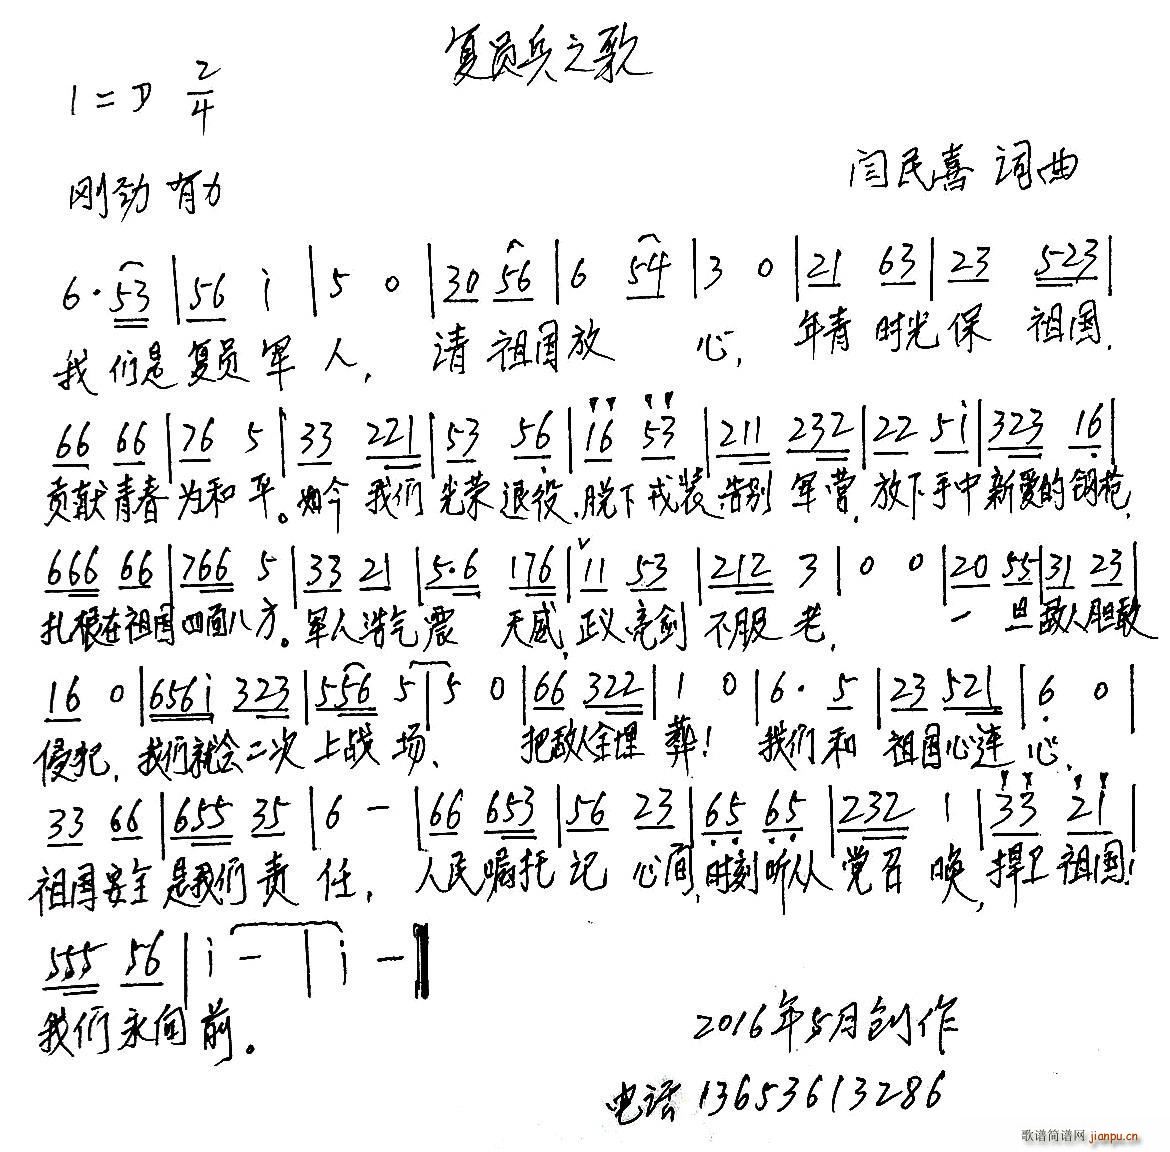 复员兵之歌
1=D 2/4
刚劲有力
闫民喜 词曲
6·53|56 i|5 0|30 56|6 54|3 0|21 63|23 523|
我们是复员军人,请祖国放心,年青时光保祖国,
66 66|76 5|33 221|53 56|16 53|211 232|22 5i|323 16|
贡献青春为和平。如今我们光荣退役,脱下戎装,告别军营,放下手中新爱的钢枪,
666 66|766 5|33 21|5·6 176|11 53|212 3|0 0|20 55|31 23|
扎根在祖国四面八方。军人浩气震天威,正义亮剑不服老,一旦敌人胆敢
16 0|656i 323|556 5|5 0|66 322|1 0|6· 5|23 521|6 0|
侵犯,我们就会二次上战场、把敌人全埋葬!我们和祖国心连心、
33 66|655 35|6 -|66 653|56 23|65 65|232 1|33 21|
祖国安全是我们责任,人民嘱托记心间,时刻听从党召唤,捍卫祖国!
555 56|i -|i -‖
我们永向前。
2016年5月创作
电话 13653613286
歌谱简谱网 jianpu.cn